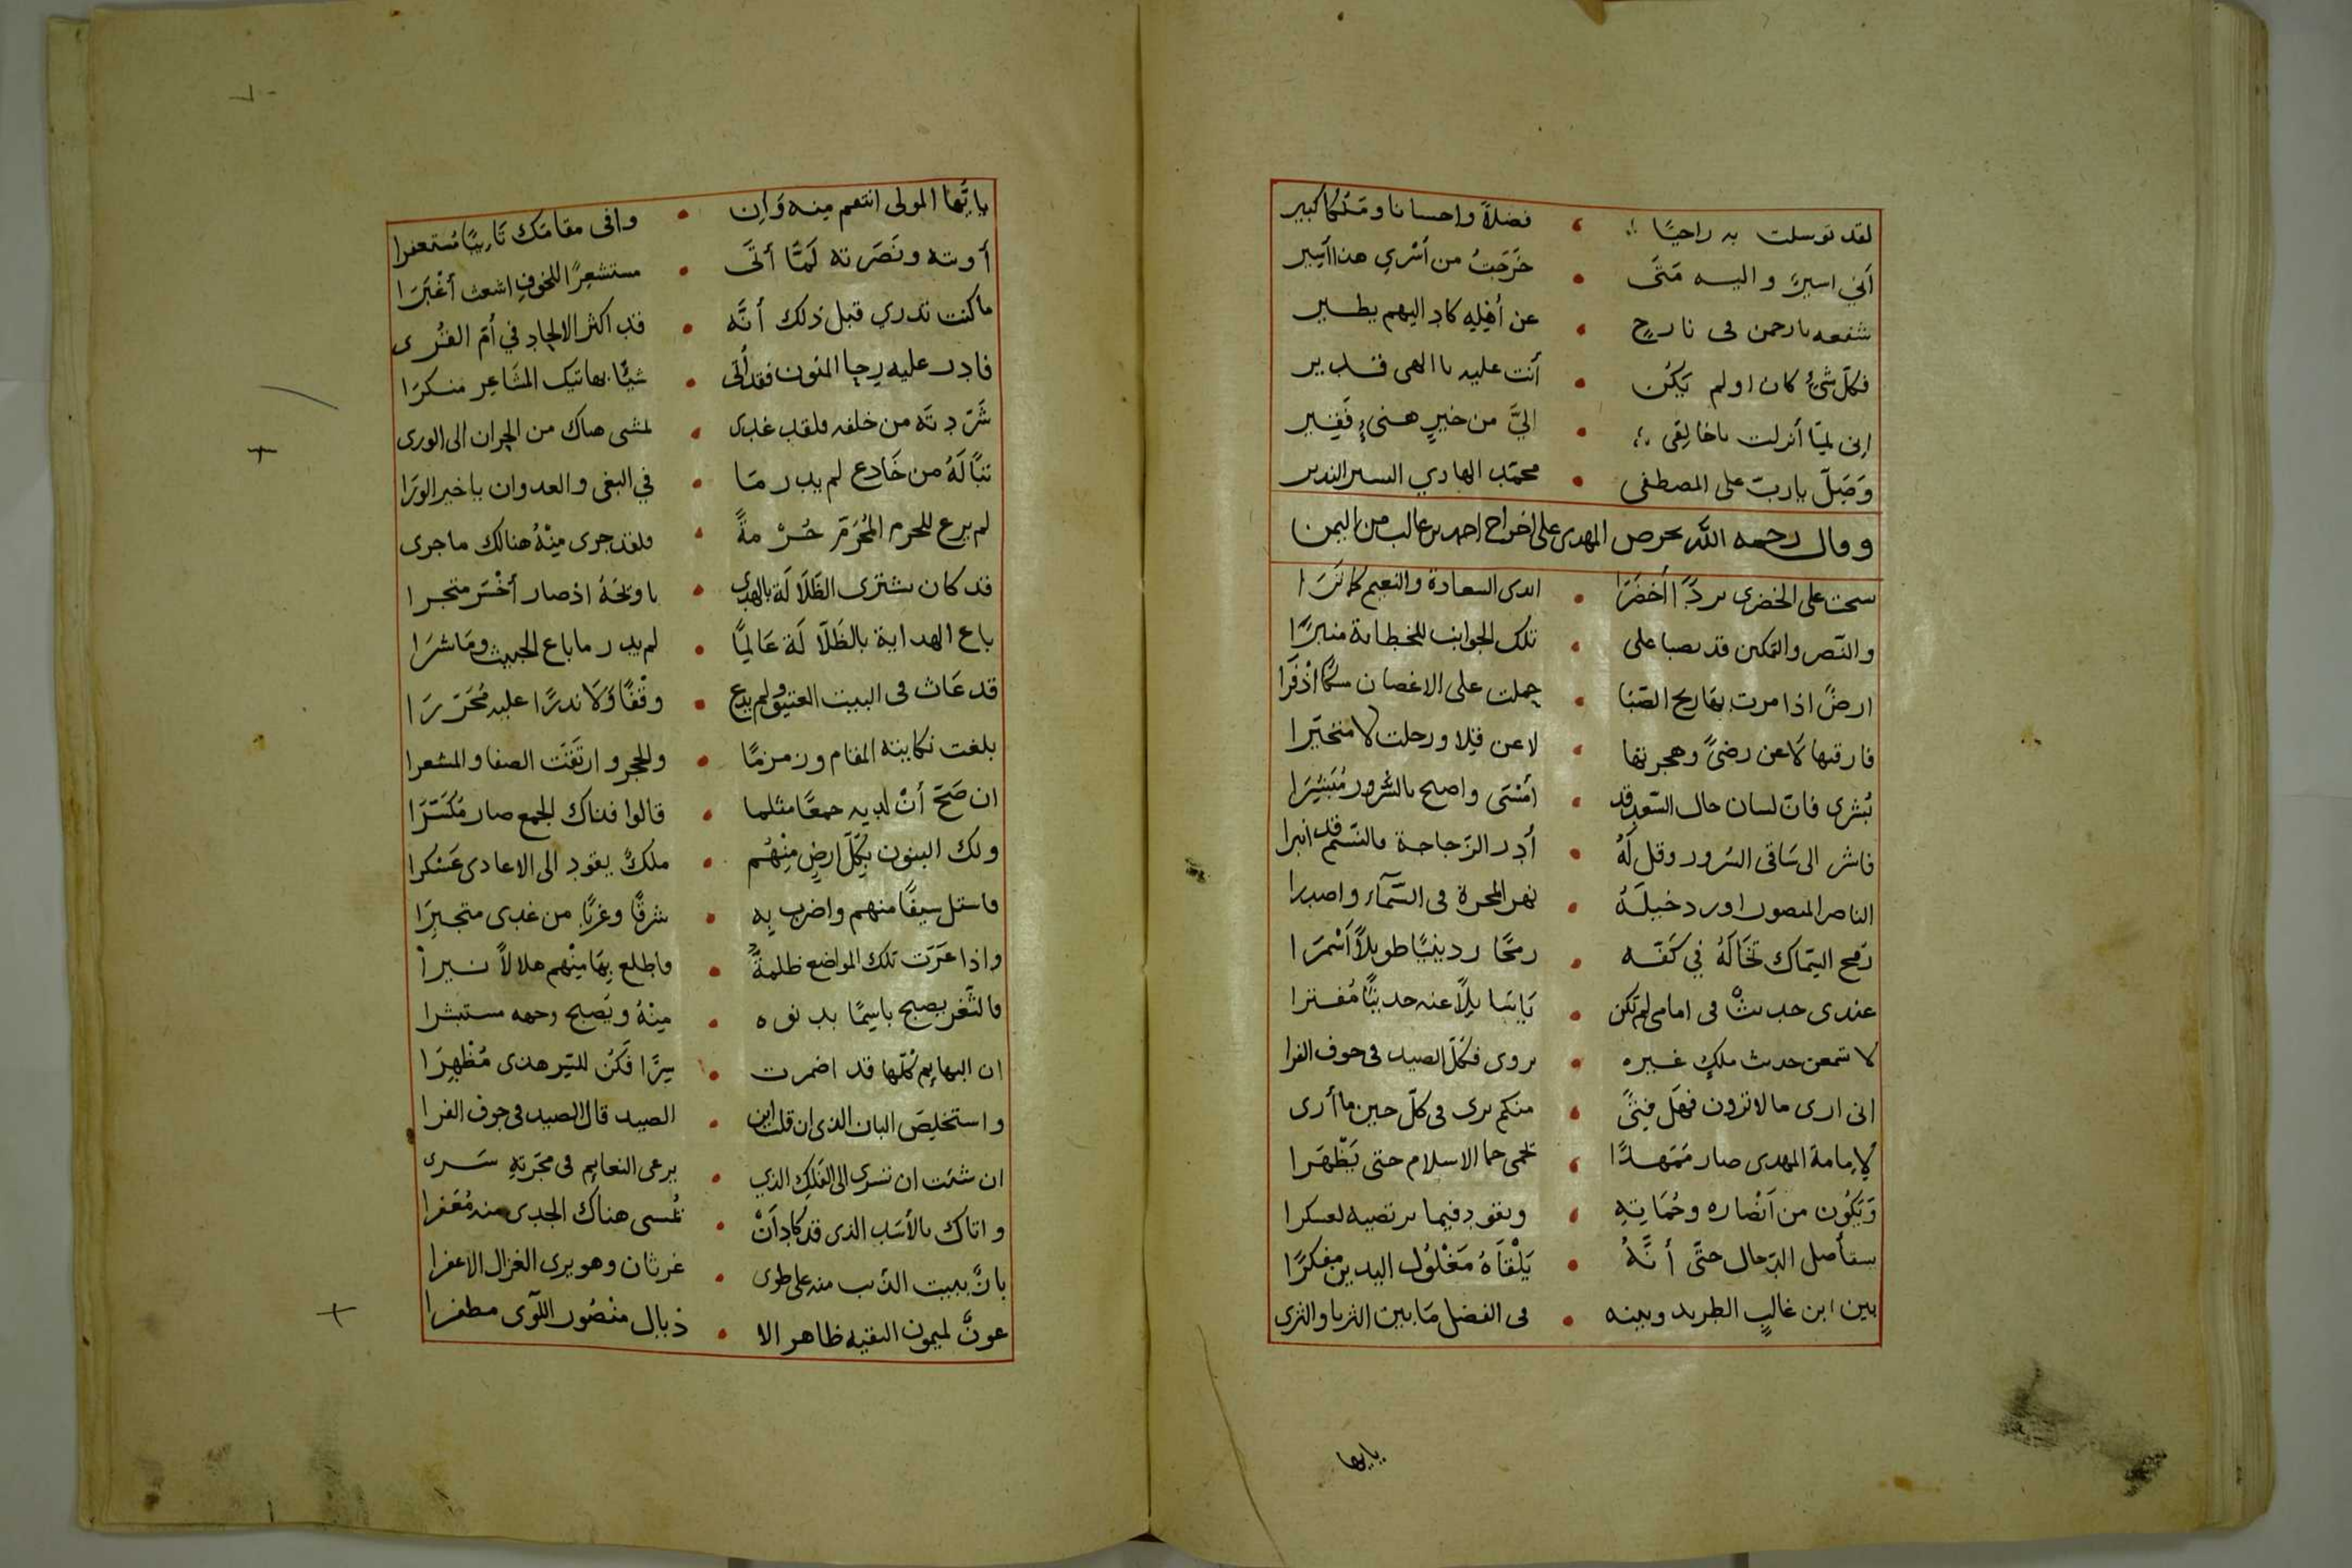 لقد توسلت به راجيًا فضلاً واحسانا ومَنًّا كبير
أني اسيرٌ واليه مَتَى خَرَجتُ من أَسْري هذا أسير
شفعه يارحمن فى نازحٍ عن أهْلِهِ كاد اليهم يطير
فكلّ شئٍ كان اولم يَكُن أنت عليه ياالهى قدير
إنى لِمَا أنزلت ياخالِقى اليَّ من خيرٍ هنىءٍ فَقِير
وَصَلِّ ياربّ على المصطفى محمّد الهادي البشير النذير
وقال رحمه الله يحرص المهدى على اخراج احمد بن غالب من اليمن
سحت على الخضرى بردًا أخضَرَا ايدى السعادة والنعيم كما تَرَا
والنّصر والتمكين قد نصبا على تلك الجوانب للخطابة منبرًا
ارضٌ اذا مرت بها ريح الصّبَا حملت على الاغصان مسكًا أذْفَرَا
فارقتها لَاعن رضىً وهجرتها لاعن قِلا ورحلت لا متخيّرا
بُشرى فانّ لسان حال السّعد قد أمْسَى واصبح بالسُّرور مُبَشِّرَا
فاشر الى سَاقى السُرور وقل لَهُ أدِر الزّجاجة فالنسيم قد انبرا
الناصر المنصور اورد خيلَهُ نهر المجرة فى السّمآء واصدرا
رمح السِّماك تخَالَهُ في كفّه رمحًا ردينيًّا طويلاً أسْمرَا
عندى حديثٌ فى امامى لم تكن يَاسَائِلاً عنه حديثًا مُفترا
لا تسمعن حديث ملكٍ غيره يروى فكلّ الصيد فى جوف الفرا
انى ارى مالاترون فهَل فتىً منكم يرى فى كلّ حين ما أرى
لإمامة المهدى صار مُمَهدًا تحمى حما الاسلام حتى يَظْهَرا
وَيَكُون من أنْصاره وحُمَاتِهِ ويقود فيما يرتضيه لعسكرا
يستأصل الدّجال حتّى أنَّهُ يَلْقاهُ مَغْلُول اليدين مفكرًا
بين ابن غالبٍ الطريد وبينه فى الفضل مَابين الثريا والثرى
يايها
ياأيُّها المولى انتقم منه وَإن وافى مقامَك تَايبًا مُستغفرا
أويته ونَصَرته لَمَّا أتَى مستشعِرًا للخوفِ اشعث أغْبَرَا
ماكنت تدري قبل ذلك أنَّه قد اكثر الالحاد في أمّ القُرى
فادِر عليه رحا المنون فقد أتَى شيئًا بهاتيك المشَاعِر منكرَا
شَرّدتَه من خلفه فلقد غدى
تبًّا لَهُ من خَادع لم يدر مَا في البغى والعدوان ياخير الورَا
لم يرع للحرم المُحَرّم حُرْمةً فلقد جرى مِنْهُ هنالك ماجرى
قد كان يشترى الظَلَالَة بالهدى ياويحَهُ اذ صار أخْسَر متجرا
باع الهداية بالظَلَالَة عَالِمًا لم يدر ماباع الخبيث ومَاشرَا
قد عَاث فى البيت العتيق ولم يدع وقْفًا وَلَا نذرًا عليه مُحَرّرَا
بلغت نكايته المقام وزمزمًا وللحجر وارتقت الصفا والمشعرا
ان صَحَّ أنْ لديه جمعًا مثلما قالوا فذاك الجمع صار مُكَسّرَا
ولك البنون بِكلّ ارضٍ مِنهُم ملكٌ يقود الى الاعادى عَسْكرا
فاستل سيفًا منهم واضرب بِه شرقًا وغربًا من غدى متجبِرَا
واذا عَرَت تلك المواضع ظلمةٌ فاطلع بِهَا مِنْهم هلالاً نيرا
فالثَّغر يصبح باسِمًا بدنوه مِنْهُ ويُصبح وجهه مستبشرا
ان البهايم كُلّها قد اضمرت سِرًّا فَكُن للسّر هذى مُظْهِرَا
واستخلِصَ البان الذى ان قلت اين الصيد قال الصيد فى جوف الفرا
ان شئت ان تسرى الى الفَلكِ الذي يرعى النعايم فى مجرّتهِ سَرى
واتاك بالأسَد الذى قد كاد أنْ يُمسى هناك الجدى منه مُعَفرا
بانَّ يبيت الذئب منه على طوى غرثان وهو يرى الغزال الأعفرا
عونٌ لميمون النقيبه ظاهر الا ذيال منْصُور اللّوآى مظفرا